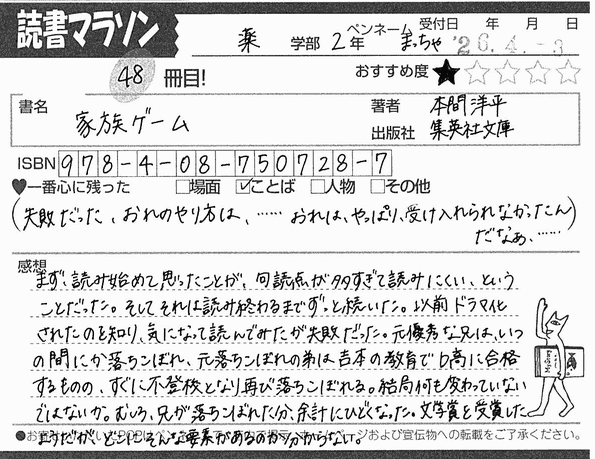 読書マラソン
薬 学部 2年 ペンネーム まっちゃ 受付日 年 月 日 '26.4.-3
48 冊目!
おすすめ度★☆☆☆☆
書名 家族ゲーム
著者 本間洋平
出版社 集英社文庫
ISBN 978-4-08-750728-7
♥一番心に残った □場面 ☑ことば □人物 □その他
(失敗だった、おれのやり方は、…… おれは、やっぱり、受け入れられなかったん
だなぁ、……)
感想
まず、読み始めて思ったことが、句読点が多すぎて読みにくい、という
ことだった。そしてそれは読み終わるまでずっと続いた。以前ドラマ化
されたのを知り、気になって読んでみたが失敗だった。元優秀な兄は、いつ
の間にか落ちこぼれ、元落ちこぼれの弟は吉本の教育でb高に合格
するものの、すぐに不登校となり再び落ちこぼれる。結局何も変わっていない
ではないか。むしろ、兄が落ちこぼれた分、余計にひどくなった。文学賞を受賞した
ようだが、どこにそんな要素があるのか分からない。